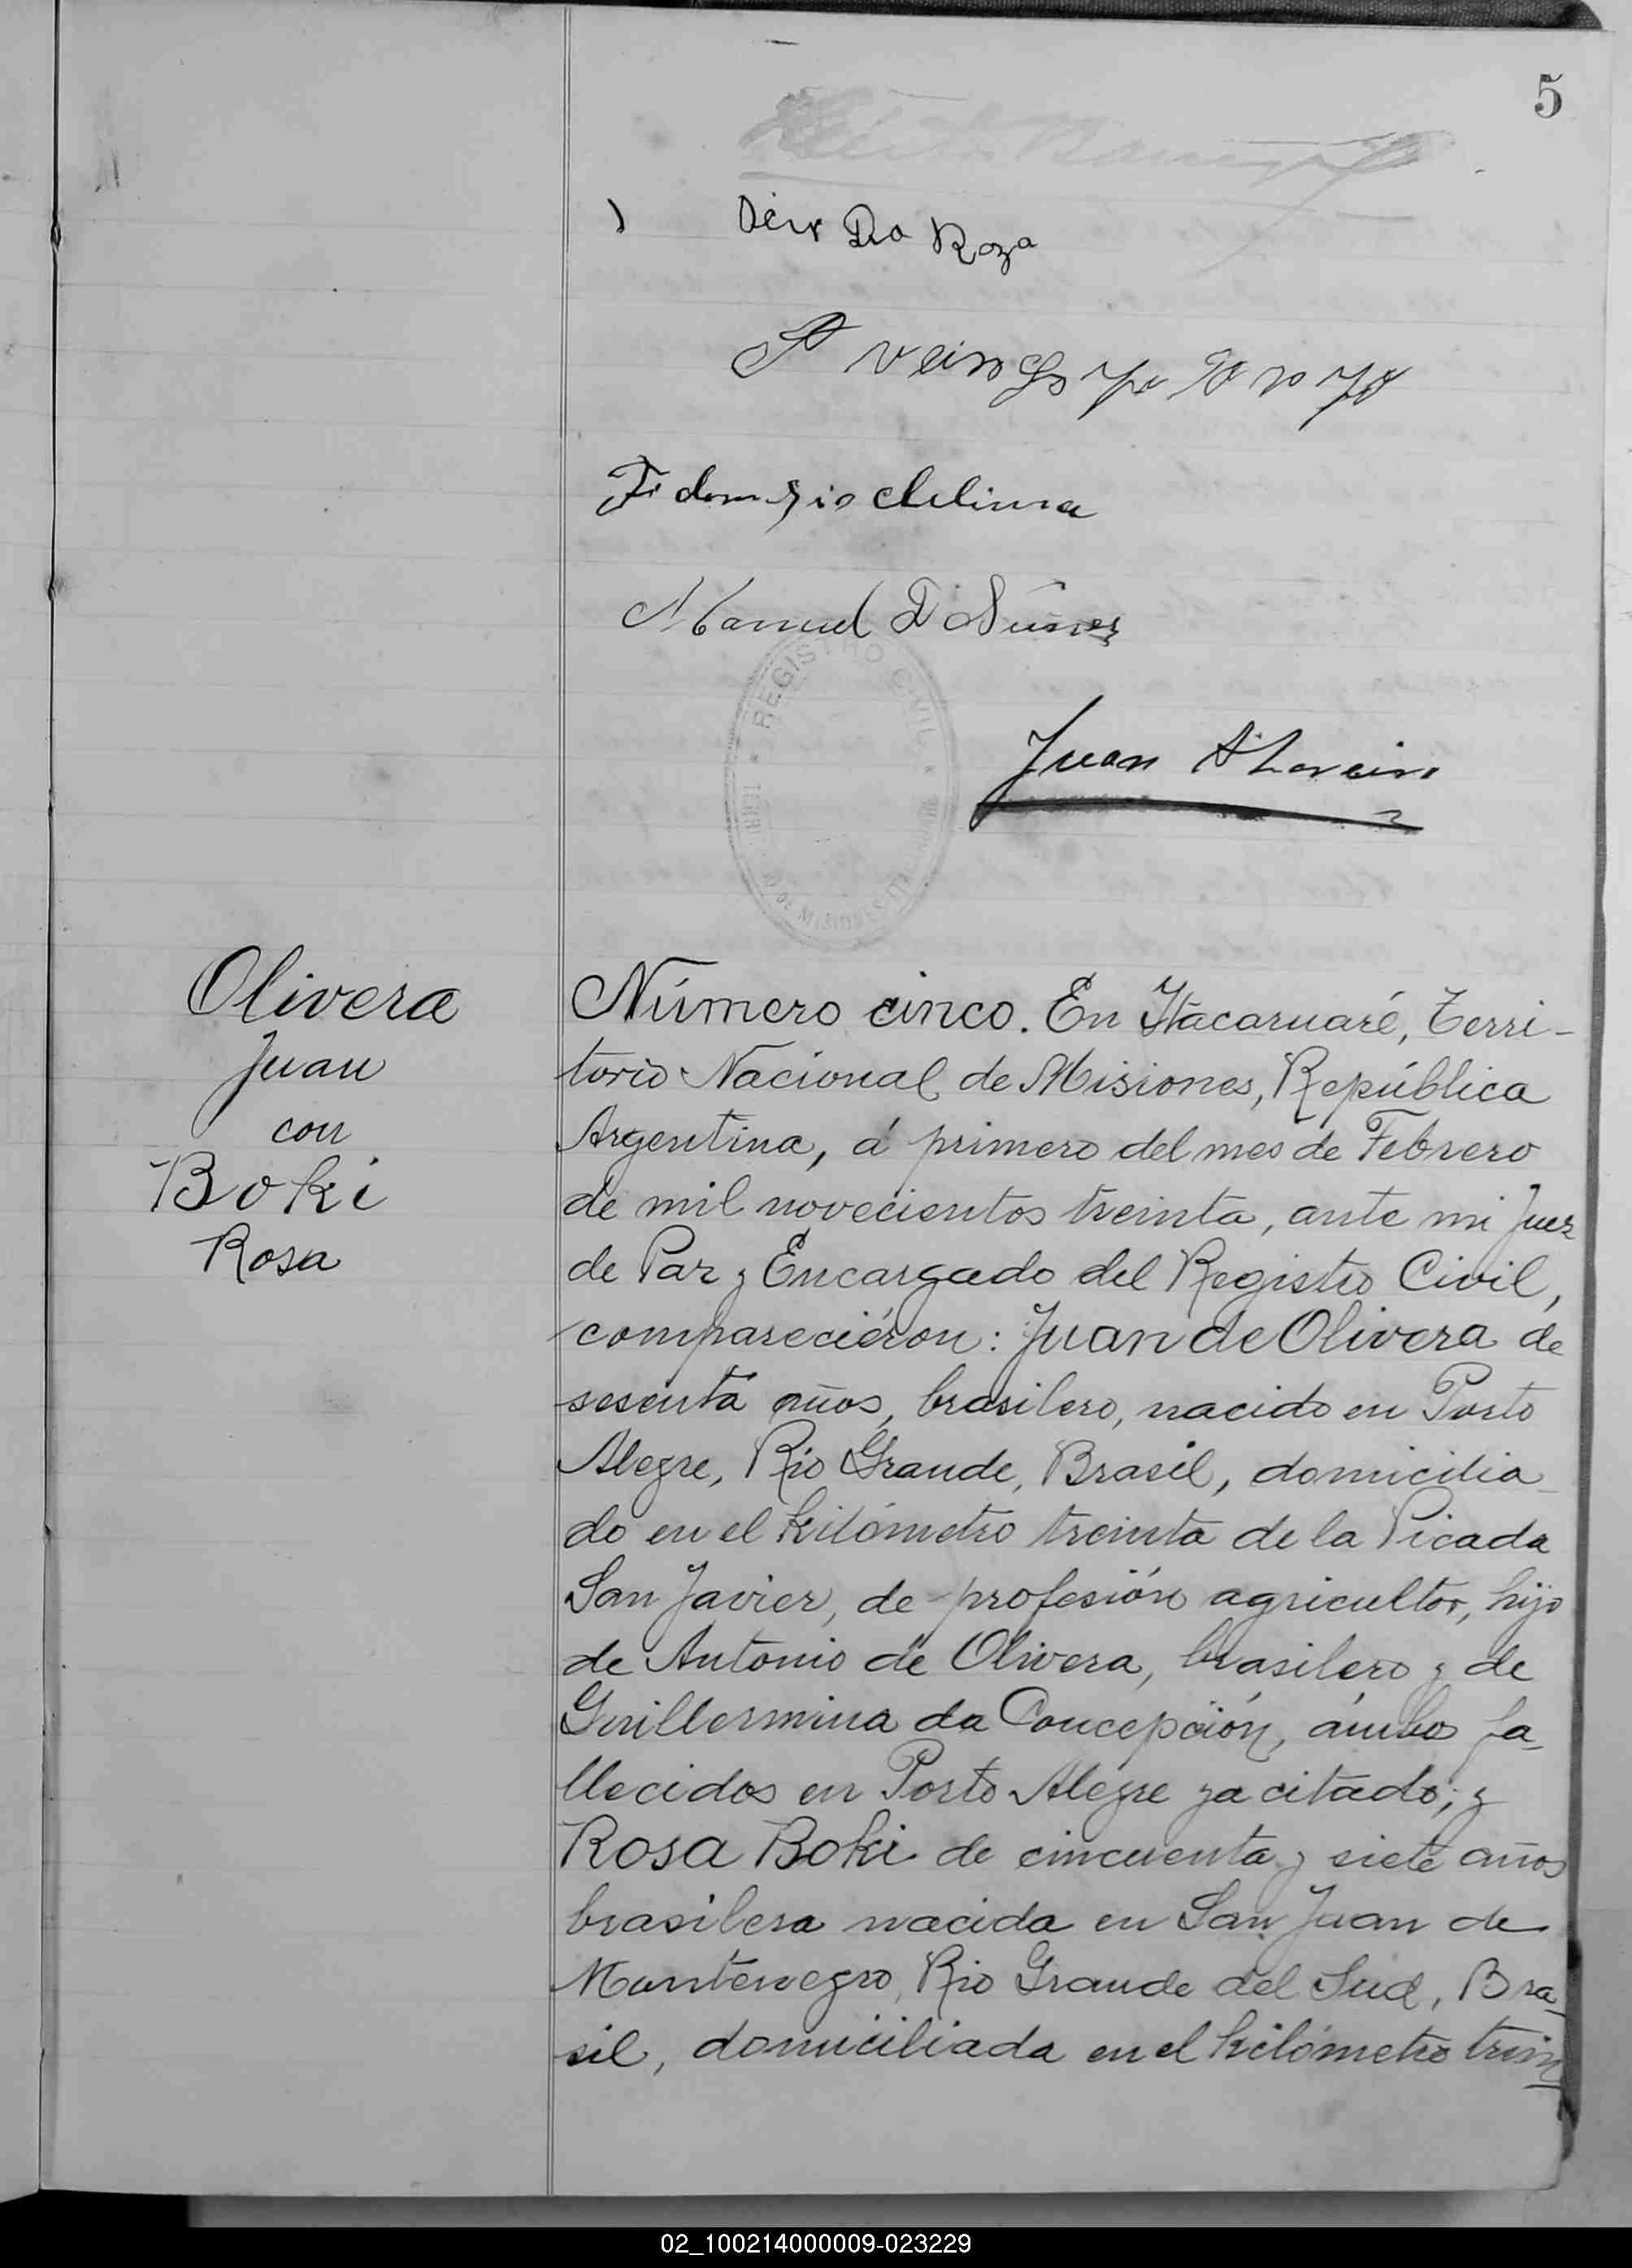 5
Da Roza
Manuel D Núñez
REGISTRO CIVIL
MISIONES
Juan
Olivera
Juan
con
Boki
Rosa
Número cinco. En Itacaruaré, Terri-
torio Nacional de Misiones, República
Argentina, á primero del mes de Febrero
de mil novecientos treinta, ante mi Juez
de Paz y Encargado del Registro Civil,
compareciéron: Juan de Olivera de
sesenta años, brasilero, nacido en Porto
Alegre, Rio Grande, Brasil, domicilia-
do en el kilómetro treinta de la Picada
San Javier, de profesión agricultor, hijo
de Antonio de Olivera, brasilero y de
Guillermina da Concepción, ámbos fa-
llecidos en Porto Alegre ya citado; y
Rosa Boki de cincuenta y siete años
brasilera nacida en San Juan de
Montenegro, Rio Grande del Sud, Bra-
sil, domiciliada en el kilómetro trein
02_100214000009-023229